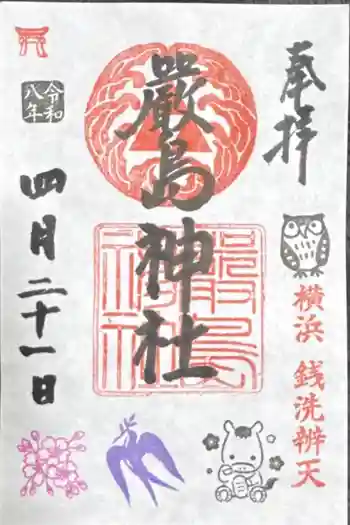 奉拝
横浜 銭洗辨天
嚴島神社
嚴島神社
令和八年
四月二十一日